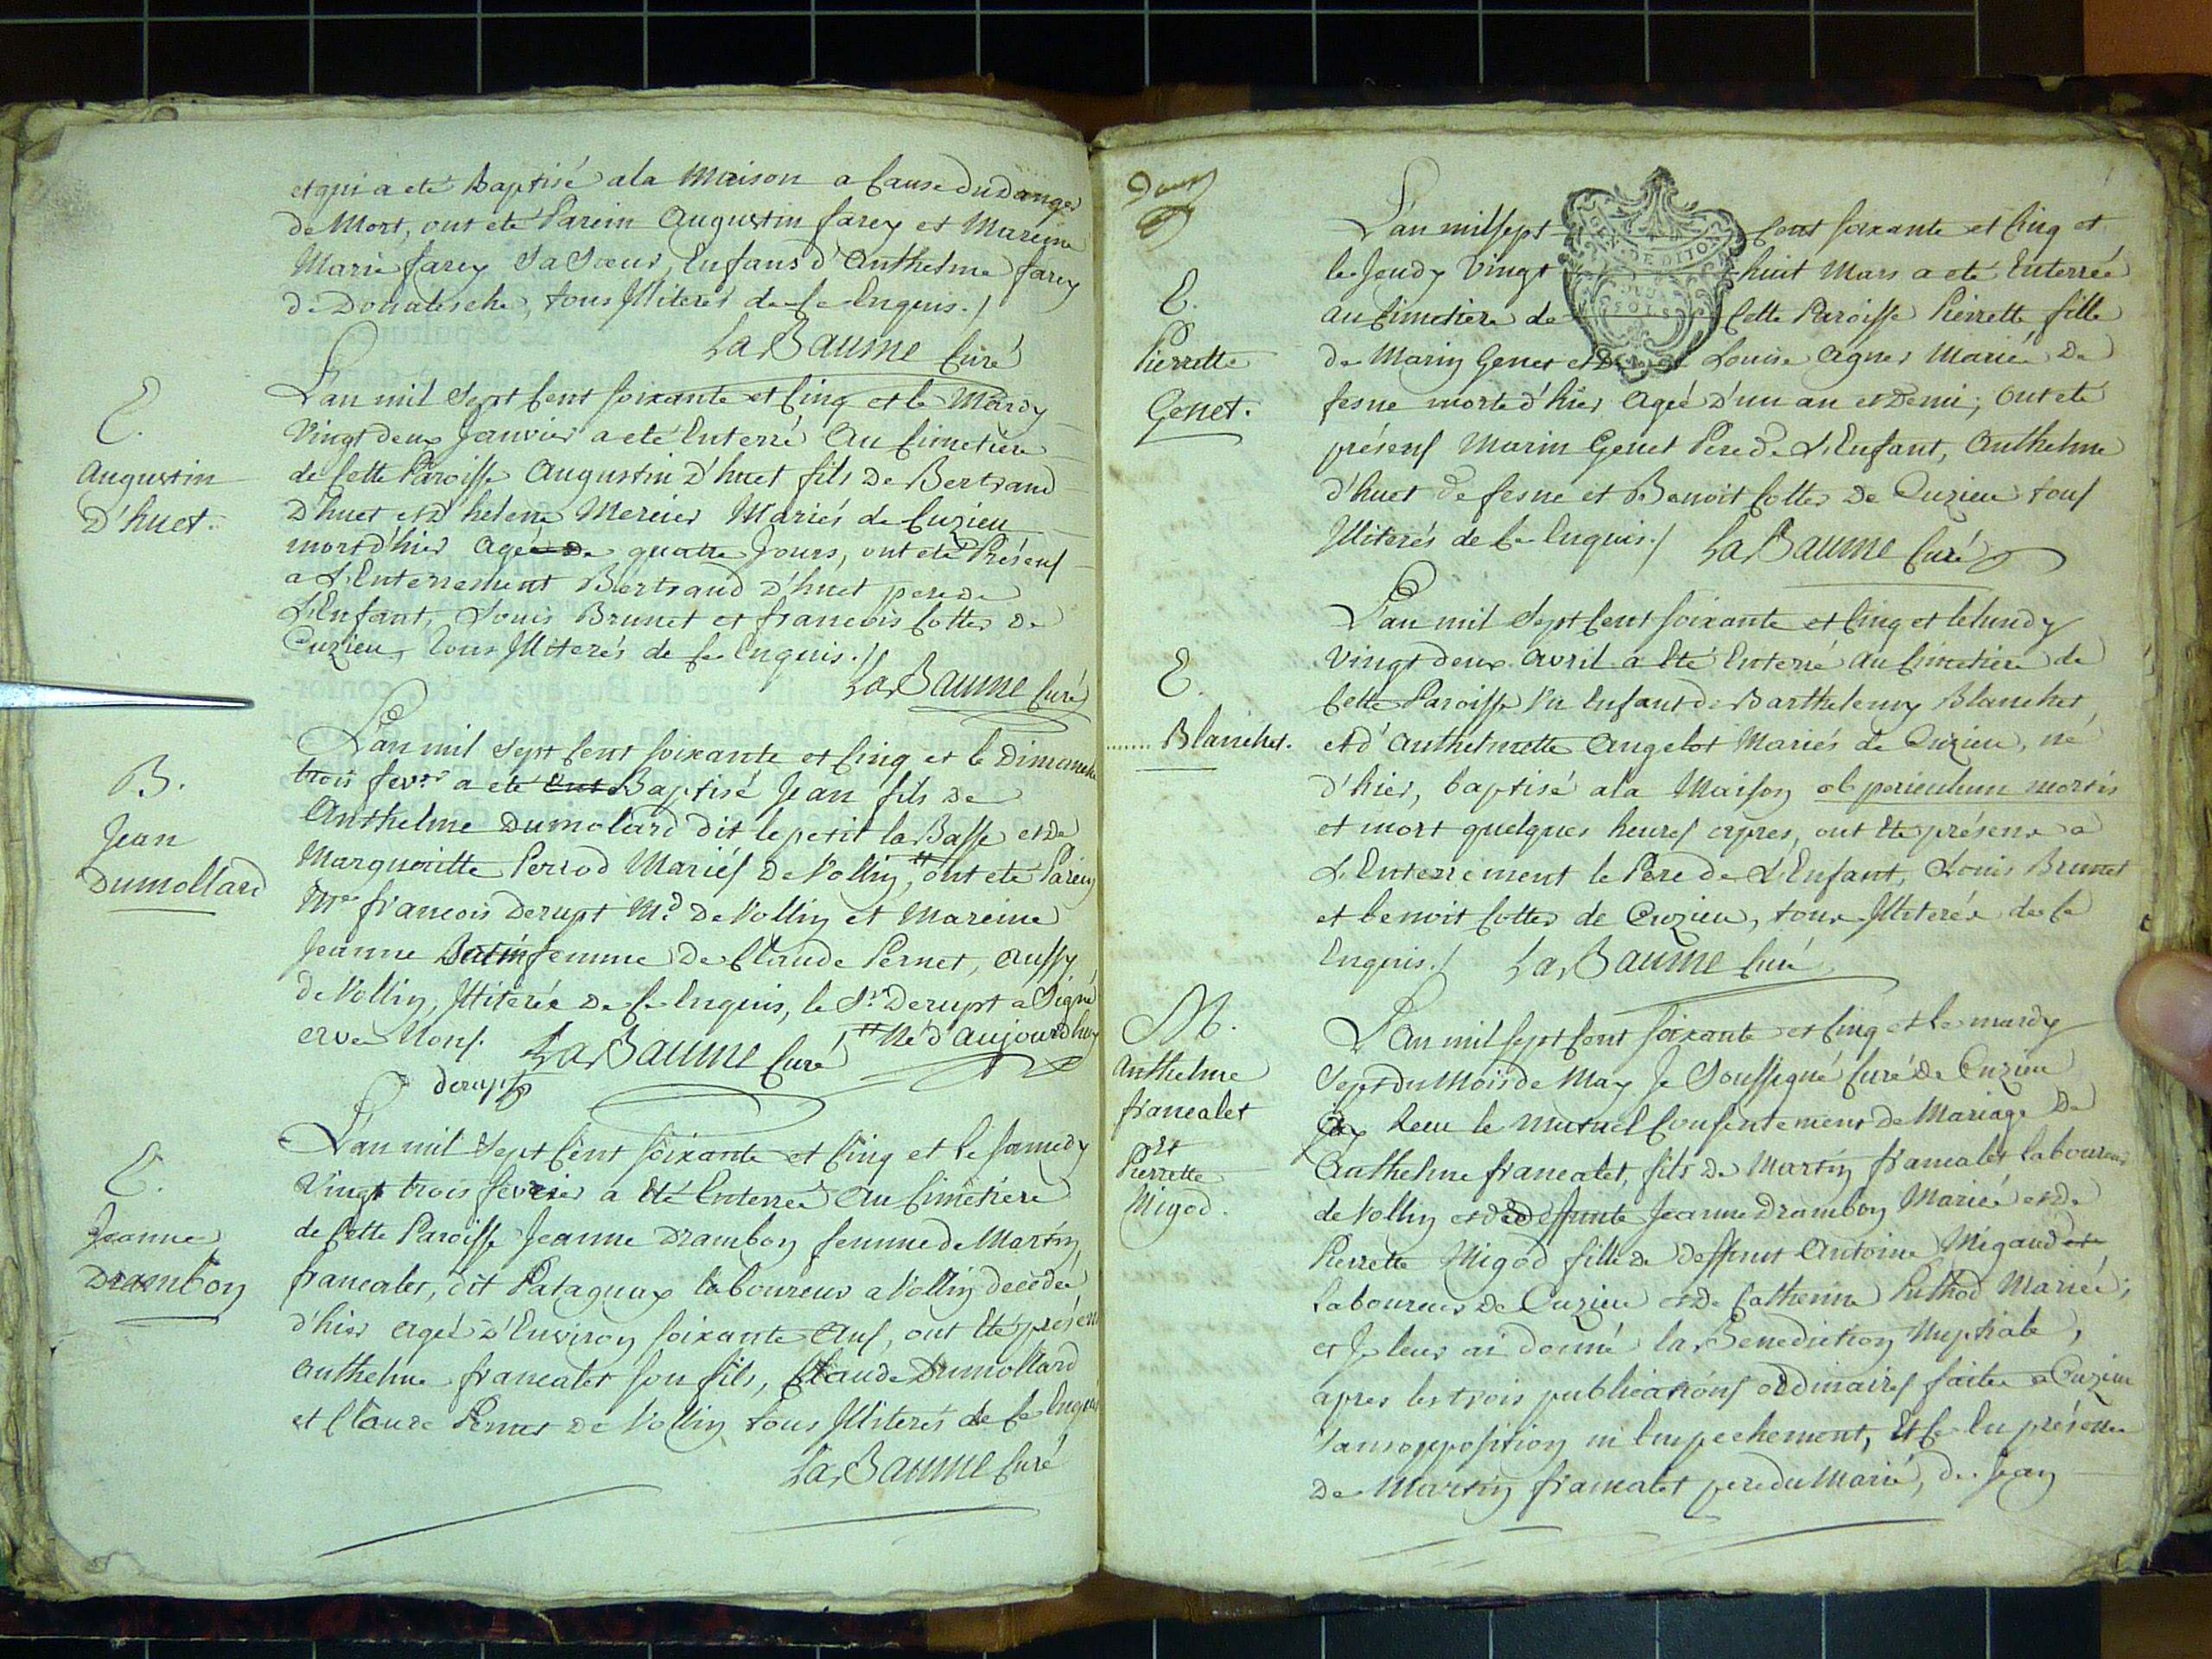 et qui a eté Baptisé a la Maison a Cause du Danger
de Mort, ont eté Parein Augustin farey et Mareine
Marie farey Sa Sœur, Enfans d'Anthelme farey
de, tous Illiterés de ce Enquis./
La Baume Curé
E.
Augustin
D'huet.
L'an mil Sept Cent soixante et Cinq et le Mardy
Vingt deux Janvier a eté Enterré Au Cimetiere
de Cette Paroisse Augustin D'huet fils De Bertrand
D'huet et d'helene Mercier Mariés de Cuzieu
mort d'hier agé de quatre Jours, ont eté Présens
a L'Enterrement Bertrand D'huet pere de
L'Enfant, Louis Brunet et francois Cottes De
Cuzieu, Tous Illiterés de ce Enquis./
La Baume Curé
B.
Jean
Dumollard
L'an mil Sept Cent soixante et Cinq et le Dimanche
trois fevr a eté Ent Baptisé Jean fils De
Anthelme Dumolard dit le petit la Basse et De
Margueritte Perrod Mariés De Vollin, ont eté Parein
Mre francois Derupt Md De Vollin et Mareine
Jeanne femme De Claude Pernet, Aussy
de Vollin, Illiterée De ce Enquis, le Sr Derupt a Signé
avec Nous. La Baume Curé Né d'aujourdhuy
derupt
E.
Jeanne
Drambon
L'an mil Sept Cent soixante et Cinq et le samedy
Vingt trois fevrier a Eté Enterrée Au Cimetiere
de Cette Paroisse Jeanne Drambon femme de Martin
francalet, dit Pataguay laboureur a Vollin decedée
d'hier agée D'Environ soixante Ans, ont Eté présens
Anthelme francalet son fils, Claude Dumollard
et Claude Pernet De Vollin tous Illiterés de ce Enquis
La Baume Curé
E.
Pierrette
Genet.
L'an mil sept Cent soixante et Cinq et
le Jeudy Vingt huit Mars a eté Enterrée
au Cimetiere de Cette Paroisse Pierrette fille
de Marin Genet et De Louise Agnes Mariés De
fesne morte d'hier Agée D'un an et Demi; ont eté
présens Marin Genet Pere De L'Enfant, Anthelme
d'huet de fesne et Benoit Cottes De Cuzieu tous
Illiterés de Ce Enquis./ La Baume Curé
E.
....... Blanchet.
L'an mil Sept Cent soixante et Cinq et le lundy
Vingt deux avril a Eté Enterré Au Cimetiere de
Cette Paroisse Un Enfant de Barthelemy Blanchet,
et d'Anthelmette Angelot Mariés de Cuzieu, né
d'hier, baptisé a la Maison ob periculum mortis
et mort quelques heures apres, ont Eté présens a
L'Enterrement le Pere de L'Enfant, Louis Brunet
et benoit Cottes de Cuzieu, tous Illiterés de ce
Enquis./ La Baume Curé
M.
Anthelme
francalet
et
Pierrette
Migod.
L'an mil sept Cent soixante et Cinq et le mardy
Sept du Mois de May Je Soussigné Curé De Cuzieu
Ay Receu le Mutuel Consentement de Mariage De
Anthelme francalet, fils De Martin francalet laboureur
de Vollin et de deffunte Jeanne Drambon Mariés et De
Pierrette Migod fille De Deffunt Antoine Migaud
laboureur De Cuzieu et De Catherine Mariés;
et Je leur ai donné la Benediction Nuptiale,
apres les trois publications ordinaires faites a Cuzieu
Sans opposition ni Empechement, Et ce En présence
De Martin francalet pere du Marié, de Jean